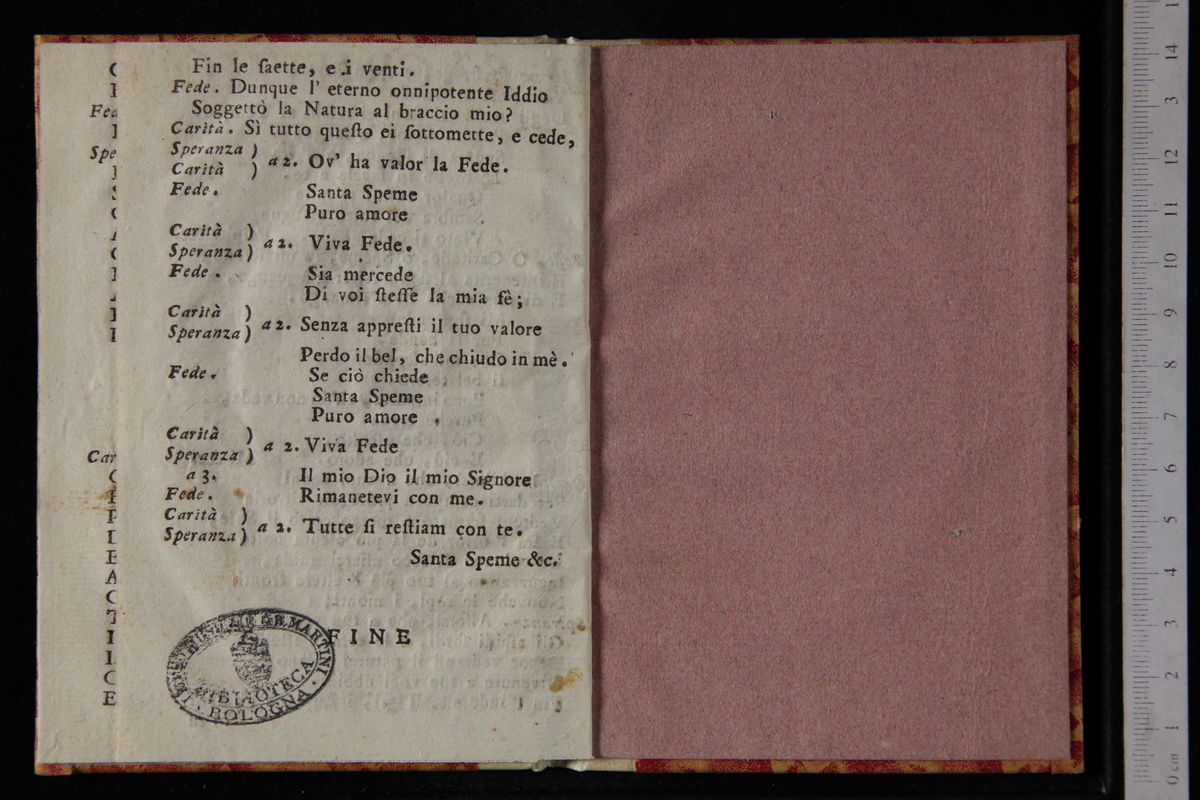 Fin le ſaette, e i venti.
Fede. Dunque l' eterno onnipotente Iddio
Soggettò la Natura al braccio mio?
Carità. Sì tutto queſto ei ſottomette, e cede,
Speranza )
Carità ) a 2. Ov' ha valor la Fede.
Fede. Santa Speme
Puro amore
Carità )
Speranza ) a 2. Viva Fede.
Fede. Sia mercede
Di voi ſteſſe la mia fè;
Carità )
Speranza ) a 2. Senza appreſti il tuo valore
Perdo il bel, che chiudo in mè.
Fede. Se ciò chiede
Santa Speme
Puro amore
Carità )
Speranza ) a 2. Viva Fede
a 3. Il mio Dio il mio Signore
Fede. Rimanetevi con me.
Carità )
Speranza ) a 2. Tutte ſi reſtiam con te.
Santa Speme &c.
FINE
G.B. MARTINI
BIBLIOTECA
BOLOGNA
Fed
Spe
Car
0 cm 1 2 3 4 5 6 7 8 9 10 11 12 3 14